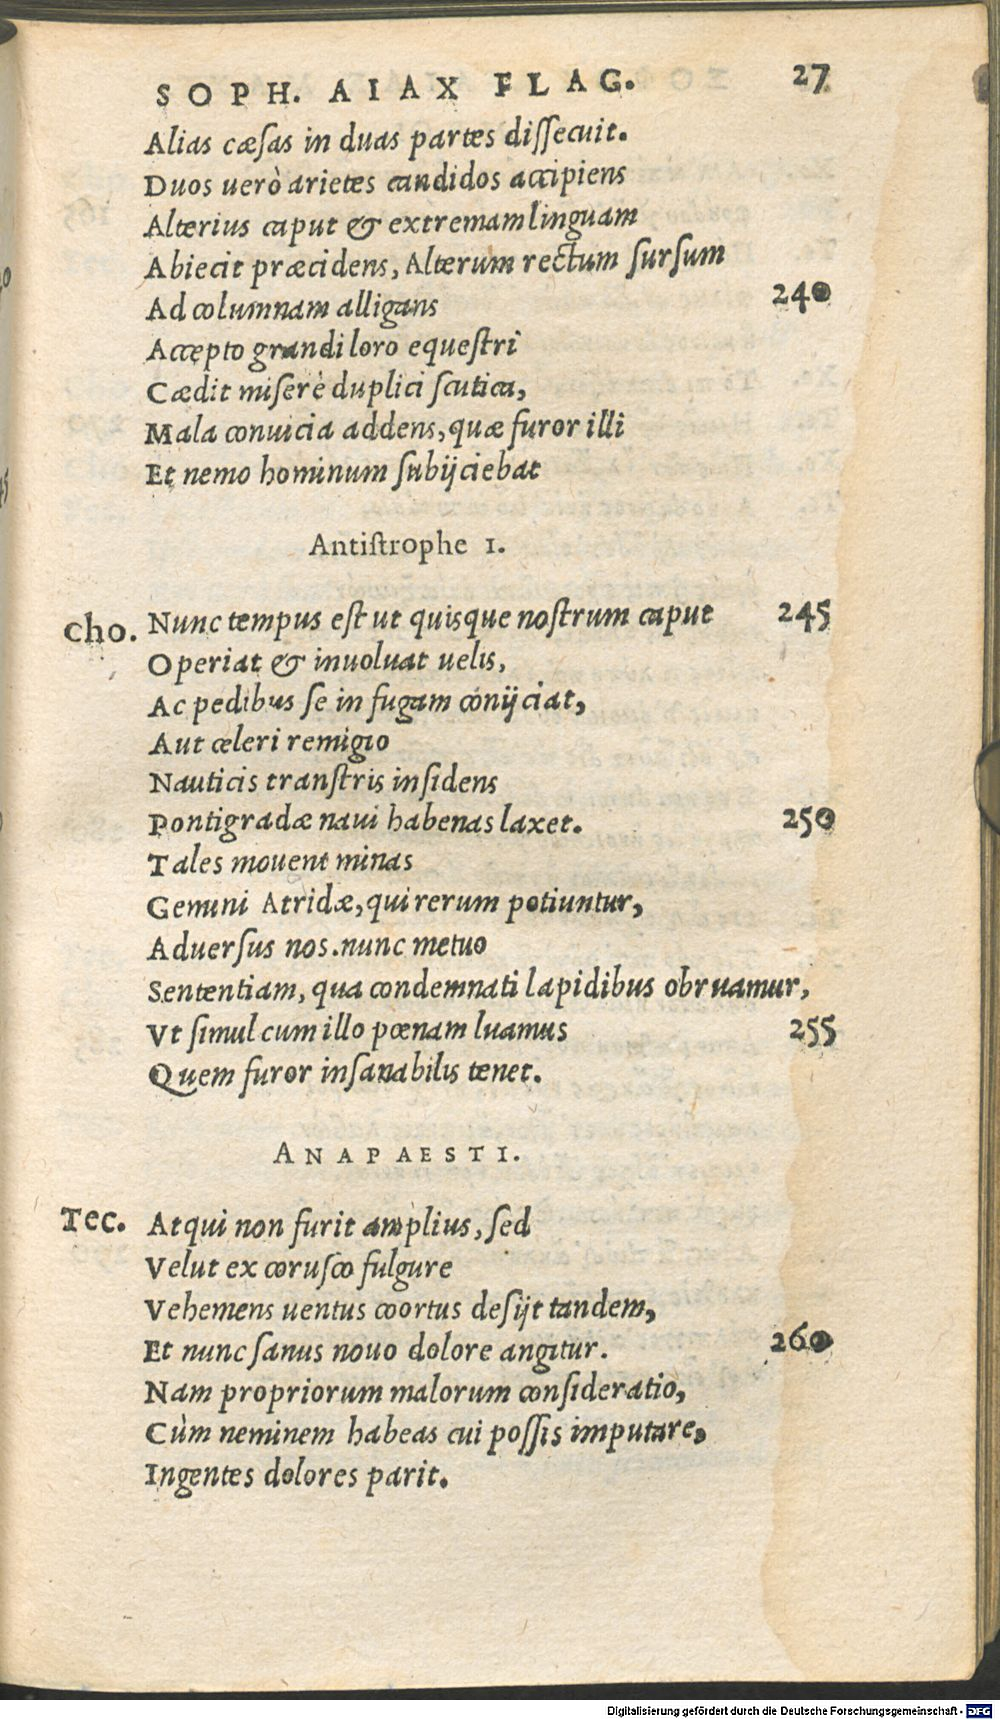 SOPH. AIAX FLAG. 27
Alias cæsas in duas partes dissecuit.
Duos uerò arietes candidos accipiens
Alterius caput & extremam linguam
Abiecit præcidens, Alterum rectum sursum
Ad columnam alligans 240
Accepto grandi loro equestri
Cædit miserè duplici scutica,
Mala conuicia addens, quæ furor illi
Et nemo hominum subijciebat
Antistrophe 1.
Cho. Nunc tempus est ut quisque nostrum caput 245
Operiat & inuoluat uelis,
Ac pedibus se in fugam cónijciat,
Aut celeri remigio
Nauticis transtris insidens
Pontigradæ naui habenas laxet. 250
Tales mouent minas
Gemini Atridæ, qui rerum potiuntur,
Aduersus nos. nunc metuo
Sententiam, qua condemnati lapidibus obruamur,
Vt simul cum illo pœnam luamus 255
Quem furor insanabilis tenet.
ANAPAESTI.
Tec. Atqui non furit amplius, sed
Velut ex corusco fulgure
Vehemens uentus coortus desijt tandem,
Et nunc sanus nouo dolore angitur. 260
Nam propriorum malorum consideratio,
Cùm neminem habeas cui possis imputare,
Ingentes dolores parit.
Digitalisierung gefördert durch die Deutsche Forschungsgemeinschaft - DFG